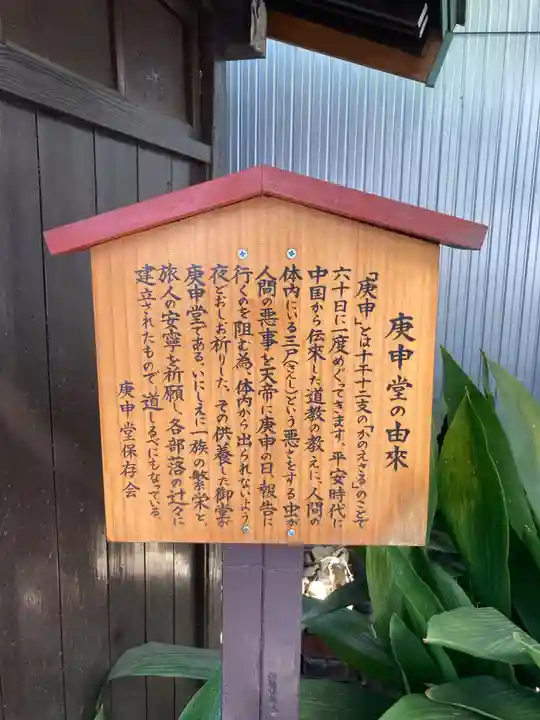 庚申堂の由来
「庚申」とは十干十二支の「かのえさる」のことで
六十日に一度めぐってきます。平安時代に
中国から伝来した道教の教えに、人間の
体内にいる三尸(さんし)という悪さをする虫が
人間の悪事を天帝に庚申の日、報告に
行くのを阻む為、体内から出られないよう
夜どおしお祈りした、その供養した御堂が
庚申堂である。いにしえに一族の繁栄と
旅人の安寧を祈願し、各部落の辻々に
建立されたもので、道しるべにもなっている。
庚申堂保存会